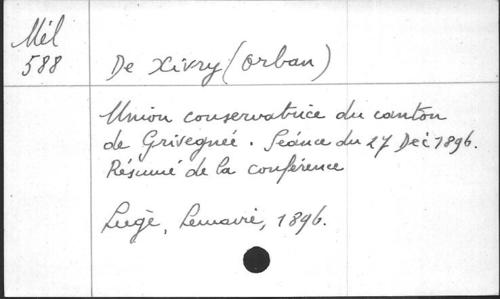 Mél
588
De Xivry (Orban)
Union conservatrice du canton
de Grivegnée. Séance du 27 Déc 1896.
Résumé de la conférence
Liège, Lemaire, 1896.